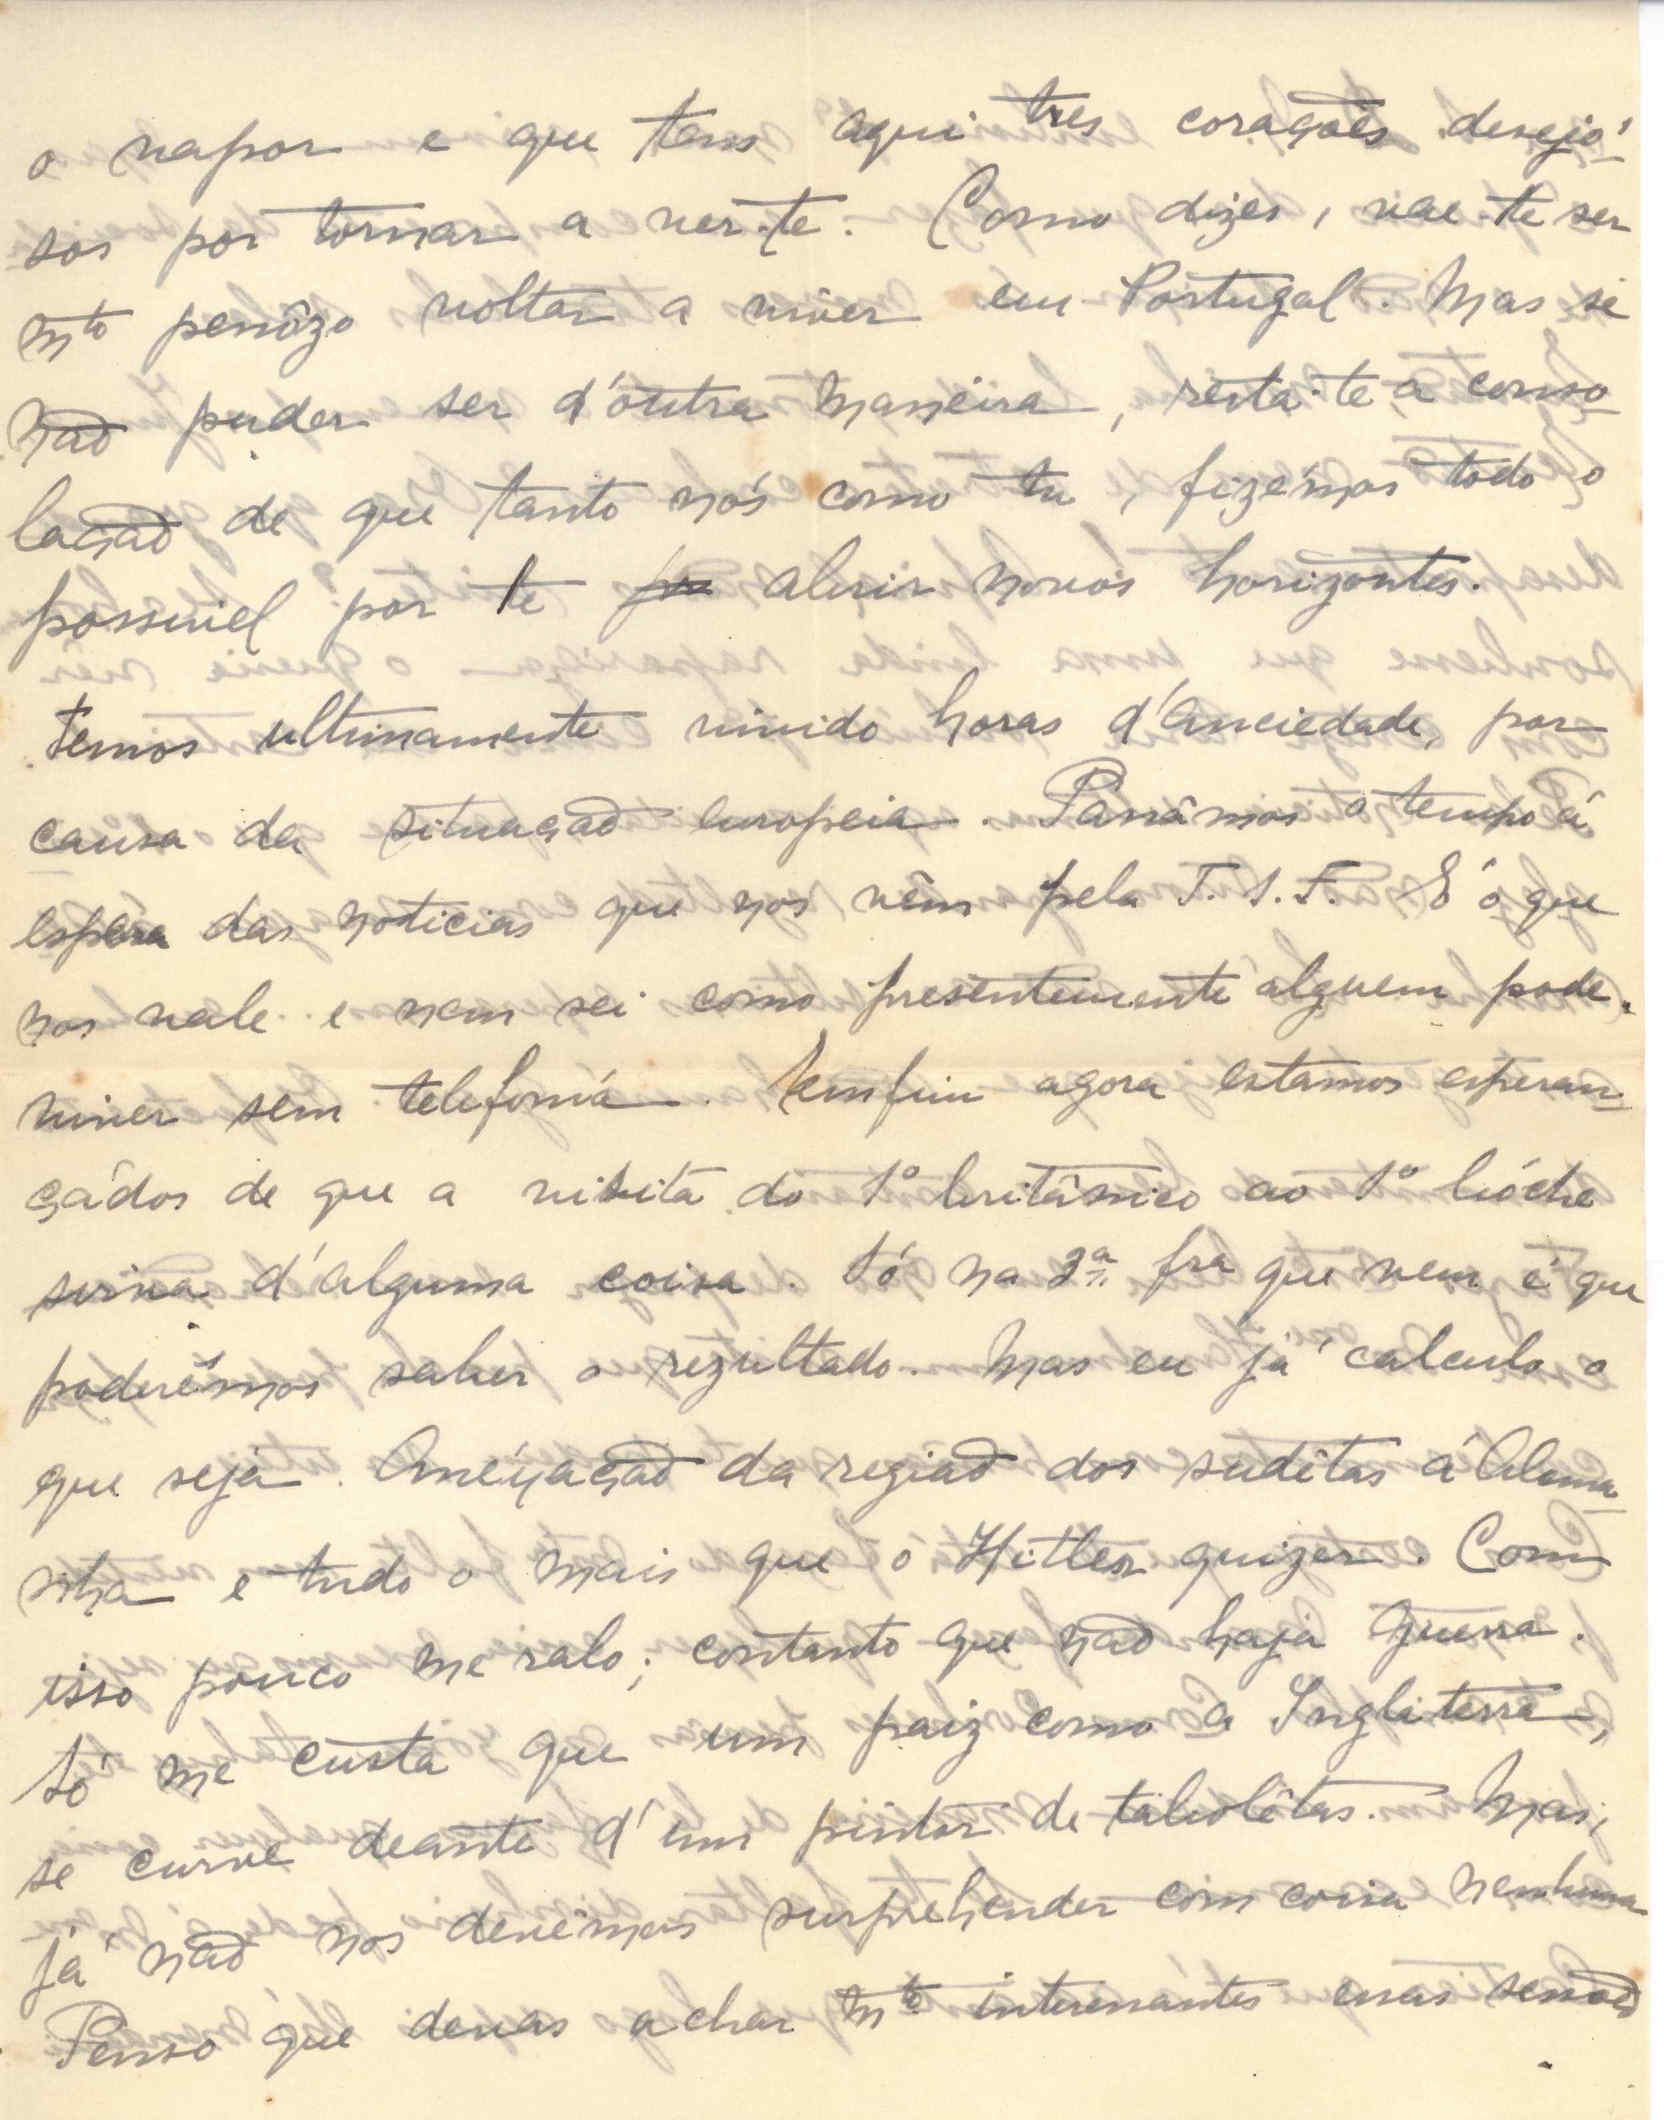 o vapor e que tens aqui tres corações desejó-
sos por tornar a ver-te. Como dizes, vae-te ser
mto penôzo voltar a viver em Portugal. Mas se
não puder ser d'outra maneira, resta-te a conso-
lação de que tanto nós como tu, fizémos todo o
possivel por te abrir novos horizontes.
Temos ultimamente vivido horas d'anciedade, por
causa da situação europeia. Passâmos o tempo á
espera das noticias que nos vêm pela T.S.F. É o que
nos vale e nem sei como presentemente alguem pode
viver sem telefonia. Emfim agora estamos esperan-
çádos de que a visita do 1º britânico ao 1º bóche
sirva d'alguma coisa. Só na 3ª fra que vem é que
poderêmos saber o rezultado. Mas eu já calculo o
que seja. Anéxação da região dos sudêtas á Alema-
nha e tudo o mais que o Hitler quizer. Com
isso pouco me ralo; contanto que não haja guerra.
Só me custa que um paiz como a Inglaterra,
se curve deante d'um pintor de tabolêtas. Mas,
já não nos devêmos surprehender com coisa nenhuma
Penso que devas achar mto interessantes essas sessões